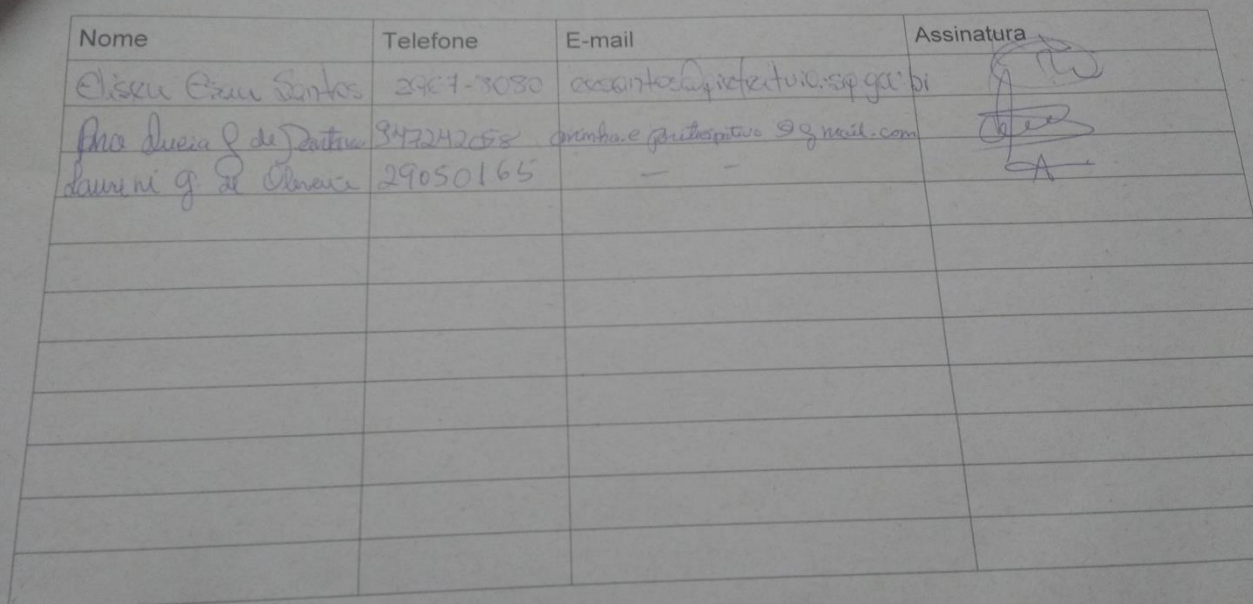 Nome Telefone E-mail Assinatura
Eliseu Esau Santos 2967-8080 eesantos@prefeitura.sp.gov.br
Ana Lucia de 947242058 @gmail.com
Laureni G de Oliveira 29050165 - -